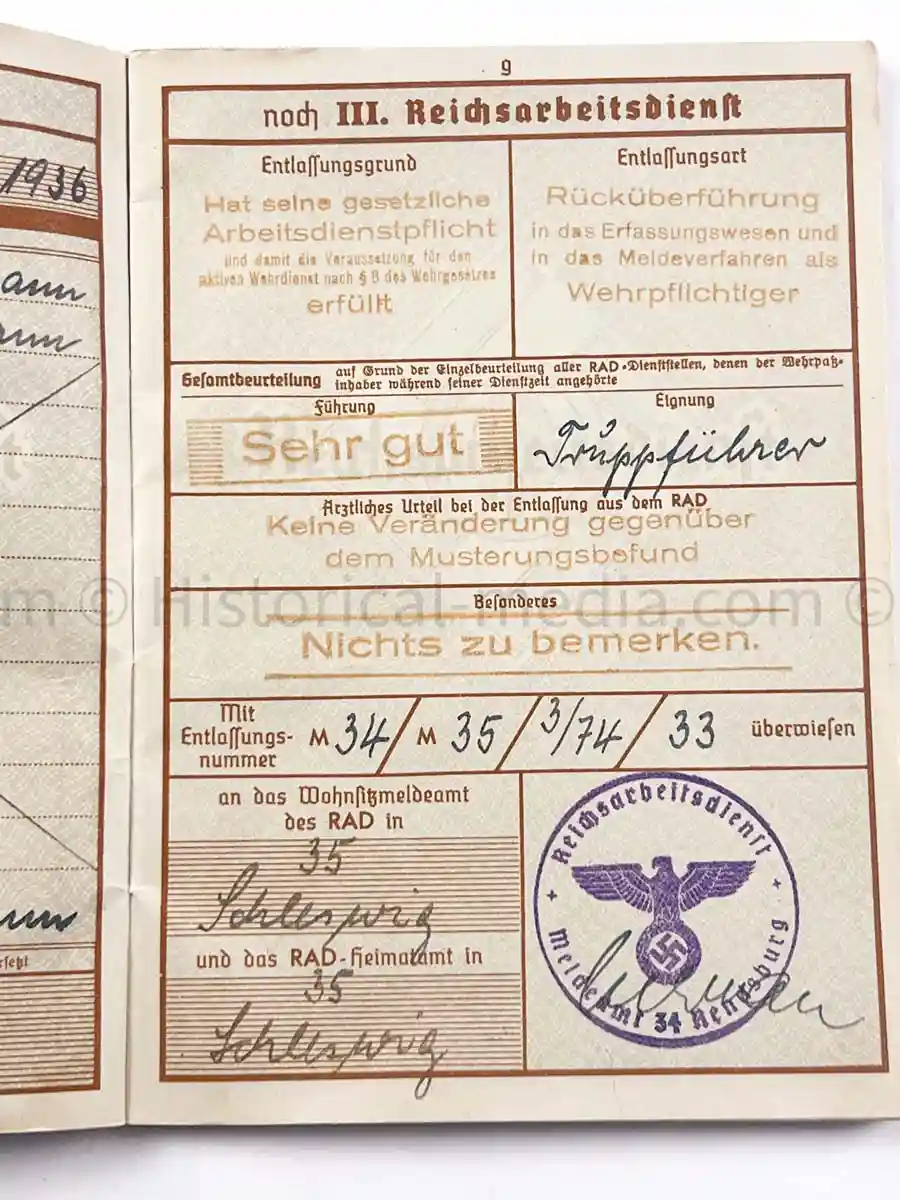 1936
9
noch III. Reichsarbeitsdienst
Entlassungsgrund
Hat seine gesetzliche
Arbeitsdienstpflicht
und damit die Voraussetzung für den
aktiven Wehrdienst nach § 8 des Wehrgesetzes
erfüllt
Entlassungsart
Rücküberführung
in das Erfassungswesen und
in das Meldeverfahren als
Wehrpflichtiger
Gesamtbeurteilung auf Grund der Einzelbeurteilung aller RAD-Dienststellen, denen der Wehrpaß-
inhaber während seiner Dienstzeit angehörte
Führung
Sehr gut
Eignung
Truppführer
Ärztliches Urteil bei der Entlassung aus dem RAD
Keine Veränderung gegenüber
dem Musterungsbefund
Besonderes
Nichts zu bemerken.
om © Historical-media.com ©
Mit
Entlassungs-
nummer
M 34 / M 35 / 3/74 / 33 überwiesen
an das Wohnsitzmeldeamt
des RAD in
35
Schleswig
und das RAD-Heimatamt in
35
Schleswig
Reichsarbeitsdienst
Meldeamt 34 Rendsburg